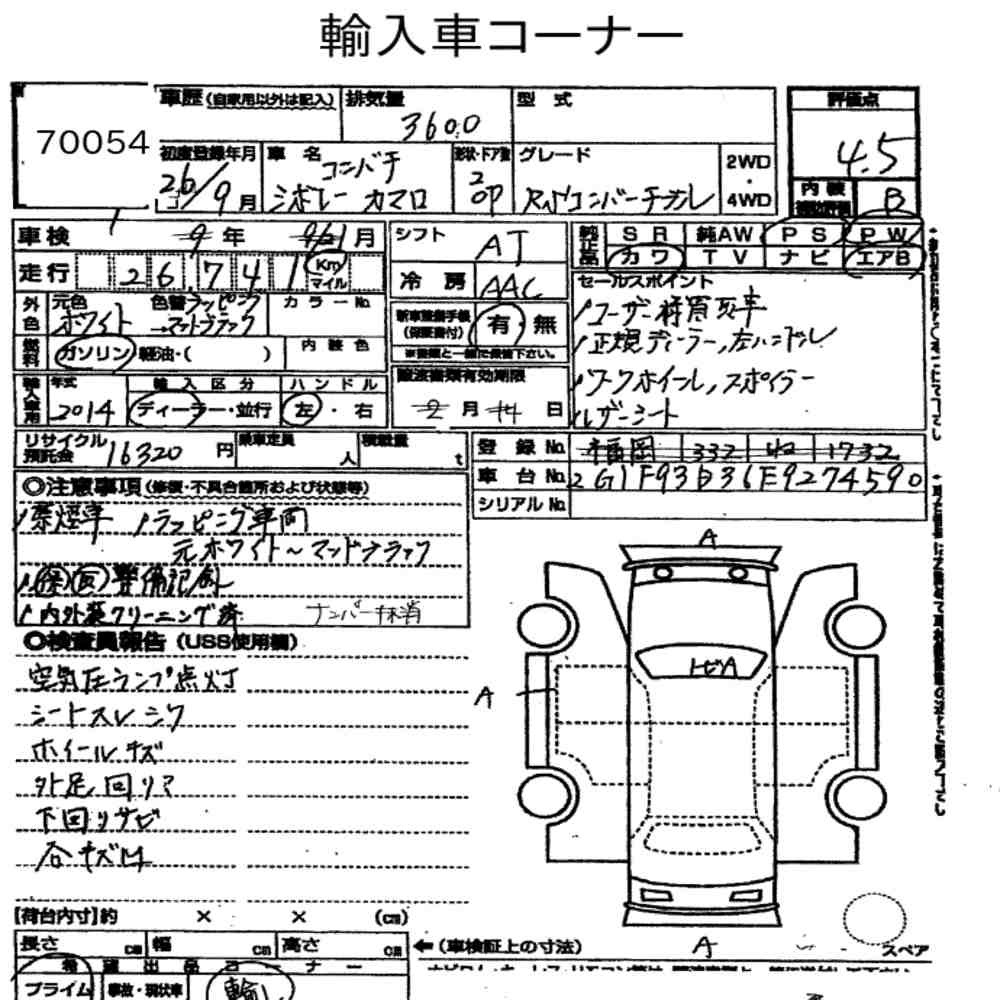 輸入車コーナー
70054
車歴(自家用以外は記入)
排気量
3600
型式
評価点
4.5
初度登録年月
26/9月
車名
コンバチ
シボレー カマロ
形状・ドア数
2
OP
グレード
RSコンバーチブル
2WD
・
4WD
内装
B
車検
9年
月
シフト
AT
純正品
SR 純AW PS PW
カワ TV ナビ エアB
走行
26,741
Km
マイル
冷房
AAC
セールスポイント
ユーザー様買取車
正規ディーラー,左ハンドル
ワークホイール,スポイラー
レザーシート
外色
元色
ホワイト
色替ラッピング
→マットブラック
カラーNo.
新車整備手帳
(保証書付)
有・無
※書類と一緒で保管下さい。
燃料
ガソリン・軽油・( )
内装色
譲渡書類有効期限
2月14日
輸入車用
年式
2014
輸入区分
ディーラー・並行
ハンドル
左・右
リサイクル
預託金
16320円
乗車定員
人
積載量
t
登録No.
福岡 332 1732
車台No.
2G1F93D36E9274590
シリアルNo.
◎注意事項(修復・不具合箇所および状態等)
禁煙車
ラッピング車両
元ホワイト～マットブラック
保 取 整備記録
内外装クリーニング済
ナンバー抹消
◎検査員報告(USS使用欄)
空気圧ランプ点灯
シートスレシワ
ホイールキズ
外足回りア
下回りサビ
各キズ凹
A
トビA
A
A
[荷台内寸]約 × × (cm)
長さ cm 幅 cm 高さ cm
←(車検証上の寸法)
スペア
希望出品コーナー
プライム
事故・現状車
輸入